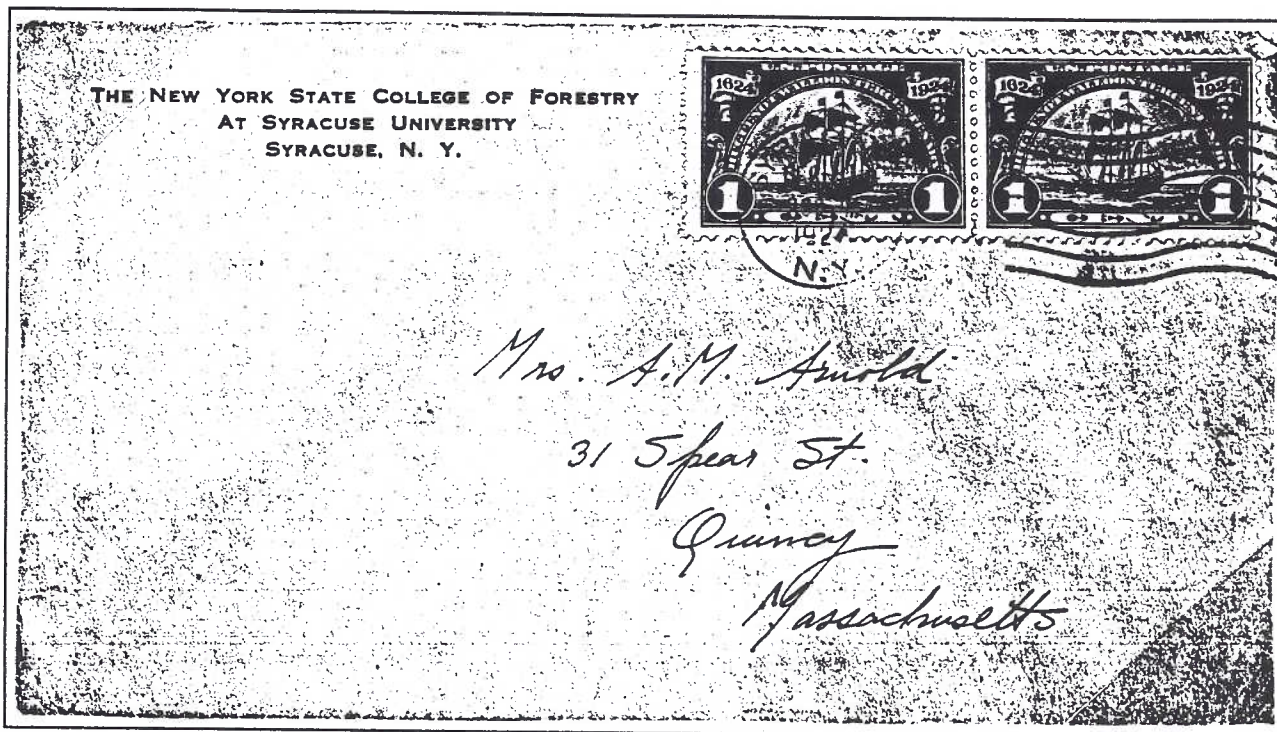 THE NEW YORK STATE COLLEGE OF FORESTRY
AT SYRACUSE UNIVERSITY
SYRACUSE, N. Y.
1624 1924
1 1
1624 1924
1 1
N.Y.
Mrs. A.M. Arnold
31 Spear St.
Quincy
Massachusetts